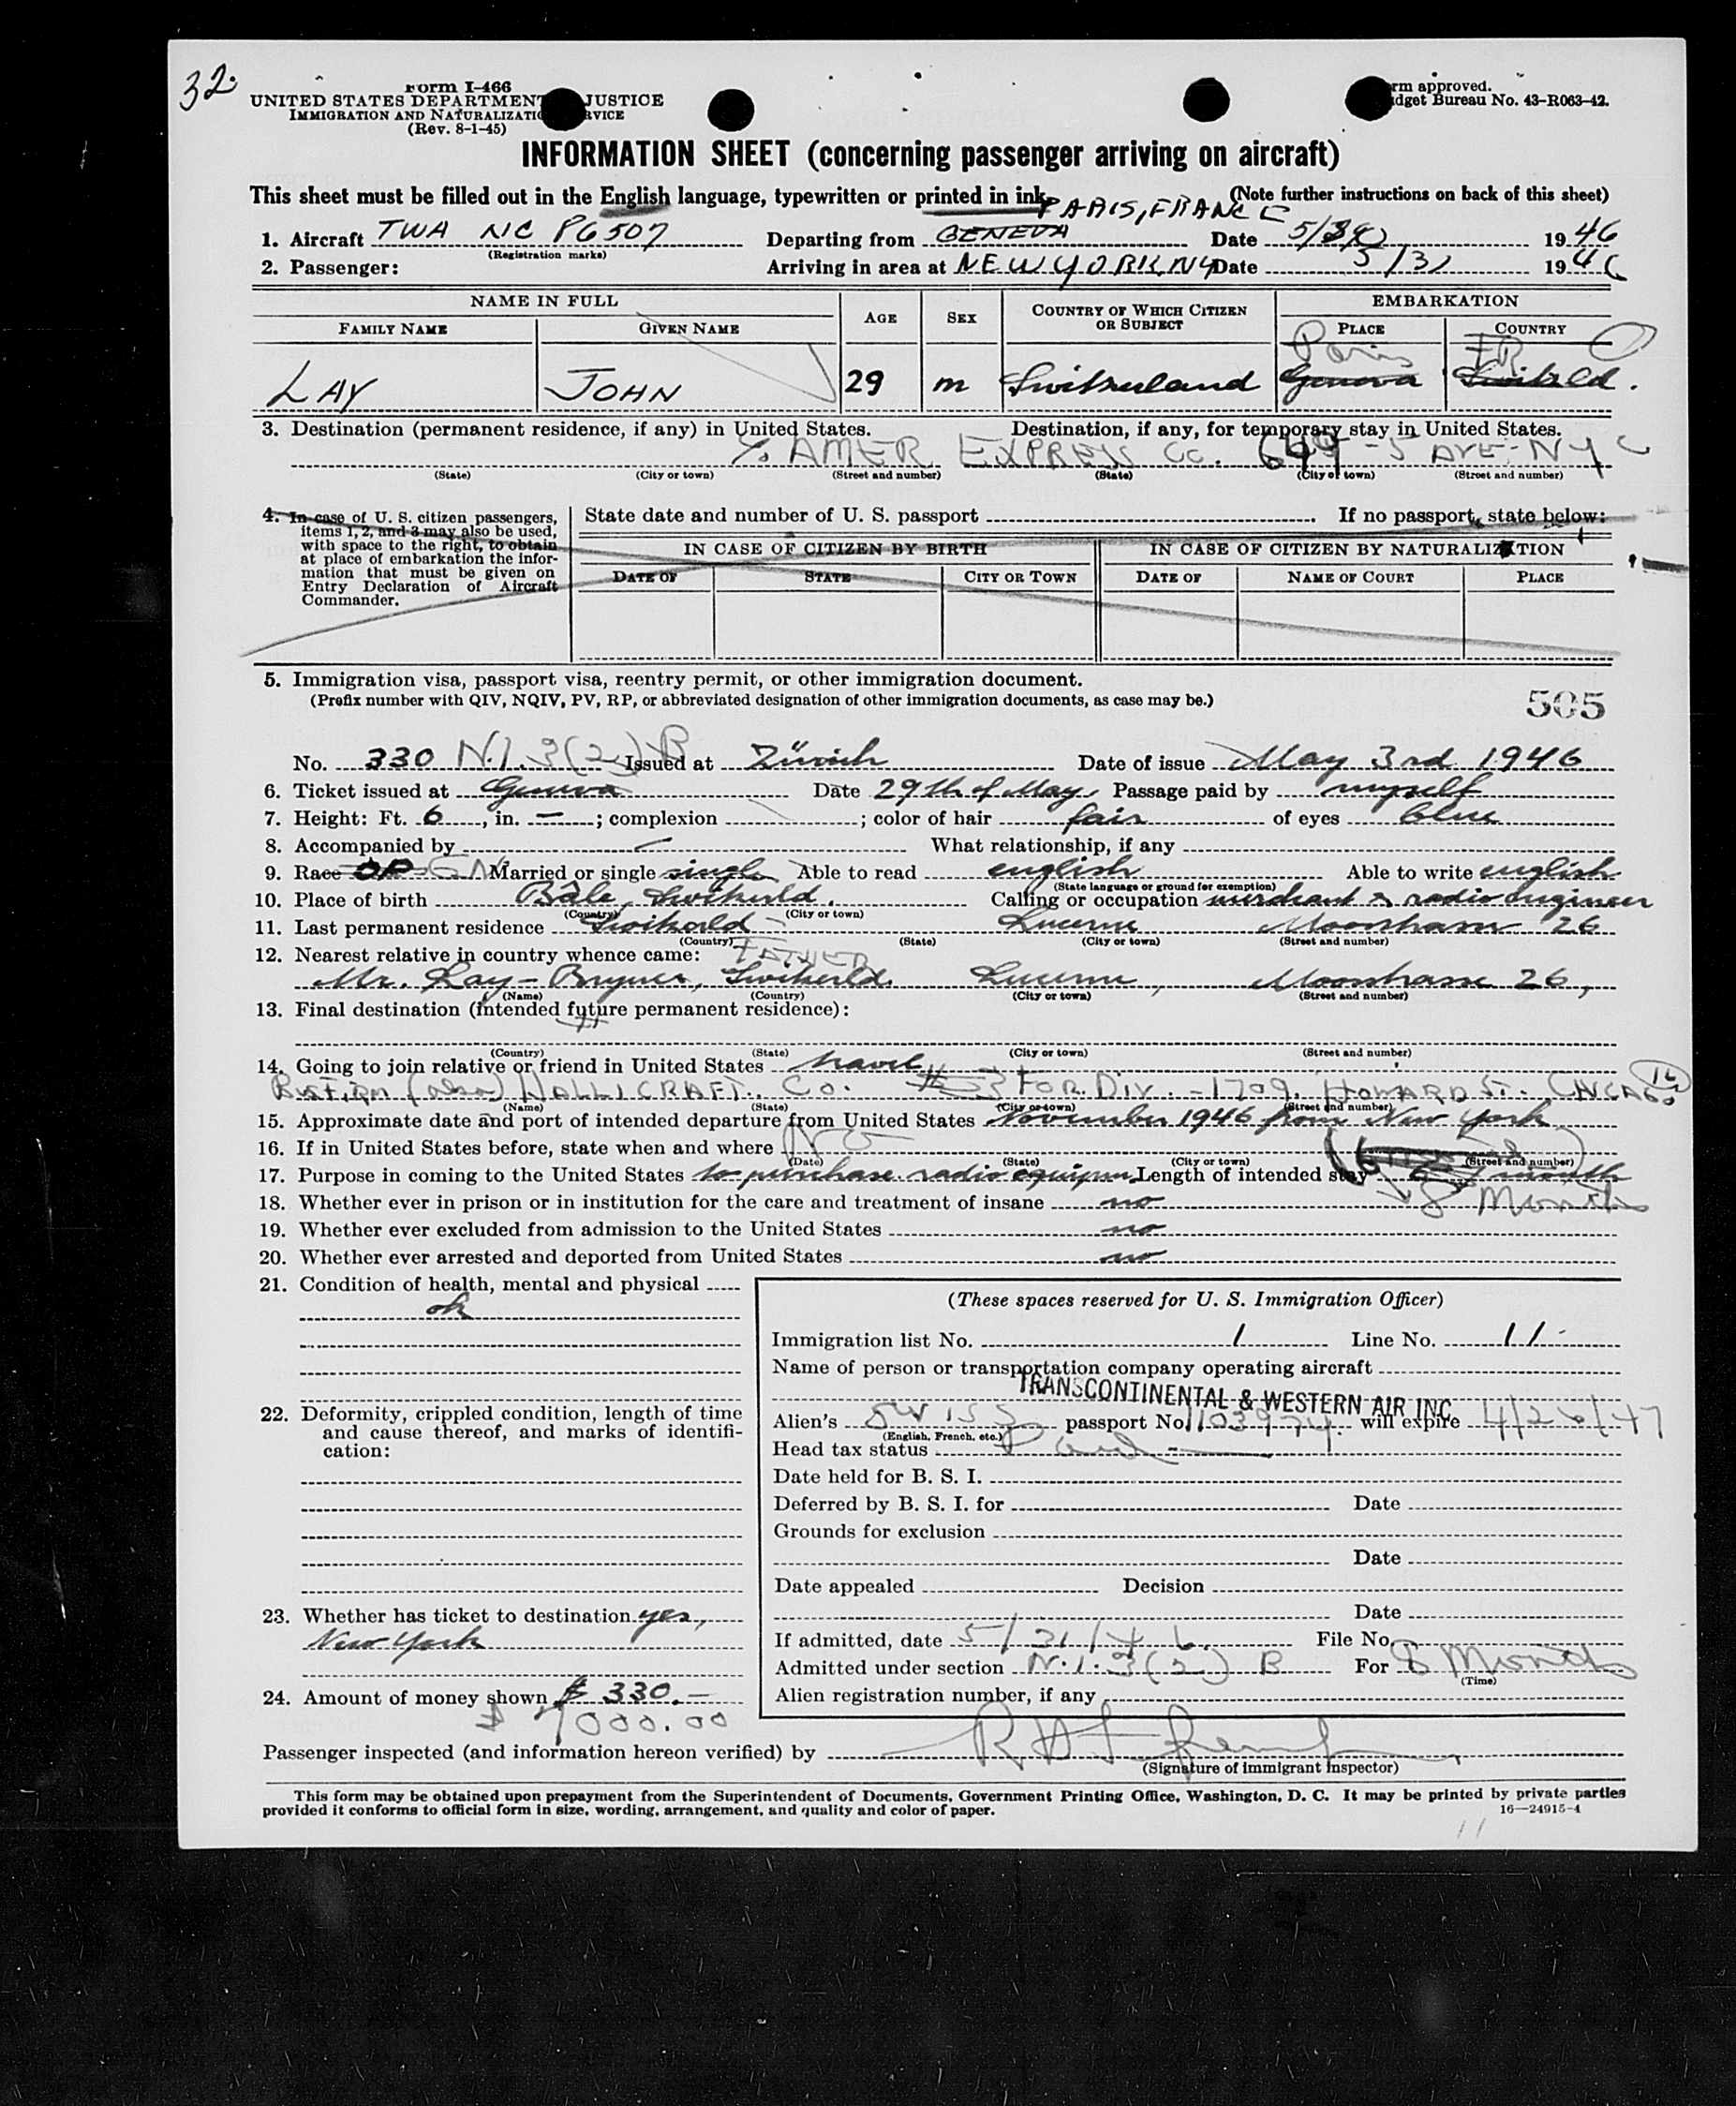 32.
Form I-466
UNITED STATES DEPARTMENT JUSTICE
IMMIGRATION AND NATURALIZATION SERVICE
(Rev. 8-1-45)
Form approved.
Budget Bureau No. 43-R063-42.
INFORMATION SHEET (concerning passenger arriving on aircraft)
This sheet must be filled out in the English language, typewritten or printed in ink. (Note further instructions on back of this sheet)
PARIS, FRANCE
1. Aircraft TWA NC 86507 Departing from GENEVA Date 5/30 1946
(Registration marks)
2. Passenger: Arriving in area at NEW YORK, NY Date 5/31 1946
NAME IN FULL AGE SEX COUNTRY OF WHICH CITIZEN OR SUBJECT EMBARKATION
FAMILY NAME GIVEN NAME PLACE COUNTRY
Paris FR
LAY JOHN 29 m Switzerland Geneva Switzld.
3. Destination (permanent residence, if any) in United States. Destination, if any, for temporary stay in United States.
% AMER EXPRESS Co. 649 - 5 AVE - NYC
(State) (City or town) (Street and number) (State) (City or town) (Street and number)
4. In case of U. S. citizen passengers, items 1, 2, and 3 may also be used, with space to the right, to obtain at place of embarkation the information that must be given on Entry Declaration of Aircraft Commander.
State date and number of U. S. passport If no passport, state below:
IN CASE OF CITIZEN BY BIRTH IN CASE OF CITIZEN BY NATURALIZATION
DATE OF STATE CITY OR TOWN DATE OF NAME OF COURT PLACE
5. Immigration visa, passport visa, reentry permit, or other immigration document.
(Prefix number with QIV, NQIV, PV, RP, or abbreviated designation of other immigration documents, as case may be.)
505
No. 330 N.I. 3(2) B Issued at Zürich Date of issue May 3rd 1946
6. Ticket issued at Geneva Date 29th of May Passage paid by myself
7. Height: Ft. 6, in. —; complexion ; color of hair fair of eyes blue
8. Accompanied by — What relationship, if any
9. Race Married or single single Able to read english Able to write english
(State language or ground for exemption)
10. Place of birth Bâle, Switzerld. Calling or occupation merchant & radio engineer
(Country) (City or town)
11. Last permanent residence Switzerld - Lucerne Moosstrasse 26
(Country) (State) (City or town) (Street and number)
12. Nearest relative in country whence came: FATHER
Mr. Lay - Bryner, Switzerld. Lucerne, Moosstrasse 26,
(Name) (Country) (City or town) (Street and number)
13. Final destination (intended future permanent residence):
(Country) (State) (City or town) (Street and number)
14. Going to join relative or friend in United States travel
HALLICRAFT. Co. FOR. DIV. - 1709. HOWARD ST. CHICAGO
(Name) (State) (City or town) (Street and number)
15. Approximate date and port of intended departure from United States November 1946 from New York
16. If in United States before, state when and where NO
(Date) (State) (City or town) (Street and number)
17. Purpose in coming to the United States to purchase radio equipm. Length of intended stay 6 month
8 Months
18. Whether ever in prison or in institution for the care and treatment of insane no
19. Whether ever excluded from admission to the United States no
20. Whether ever arrested and deported from United States no
21. Condition of health, mental and physical
ok
22. Deformity, crippled condition, length of time and cause thereof, and marks of identification:
23. Whether has ticket to destination yes,
New York
24. Amount of money shown $ 330.—
$ 1000.00
(These spaces reserved for U. S. Immigration Officer)
Immigration list No. 1 Line No. 11
Name of person or transportation company operating aircraft
TRANSCONTINENTAL & WESTERN AIR INC
Alien's SWISS passport No. 1103974 will expire 4/26/47
(English, French, etc.)
Head tax status Paid
Date held for B. S. I.
Deferred by B. S. I. for Date
Grounds for exclusion
Date
Date appealed Decision
Date
If admitted, date 5/31/46 File No.
Admitted under section N.I. 3(2) B For 8 Months
(Time)
Alien registration number, if any
Passenger inspected (and information hereon verified) by
(Signature of immigrant inspector)
This form may be obtained upon prepayment from the Superintendent of Documents, Government Printing Office, Washington, D. C. It may be printed by private parties
provided it conforms to official form in size, wording, arrangement, and quality and color of paper.
16—24915-4
11